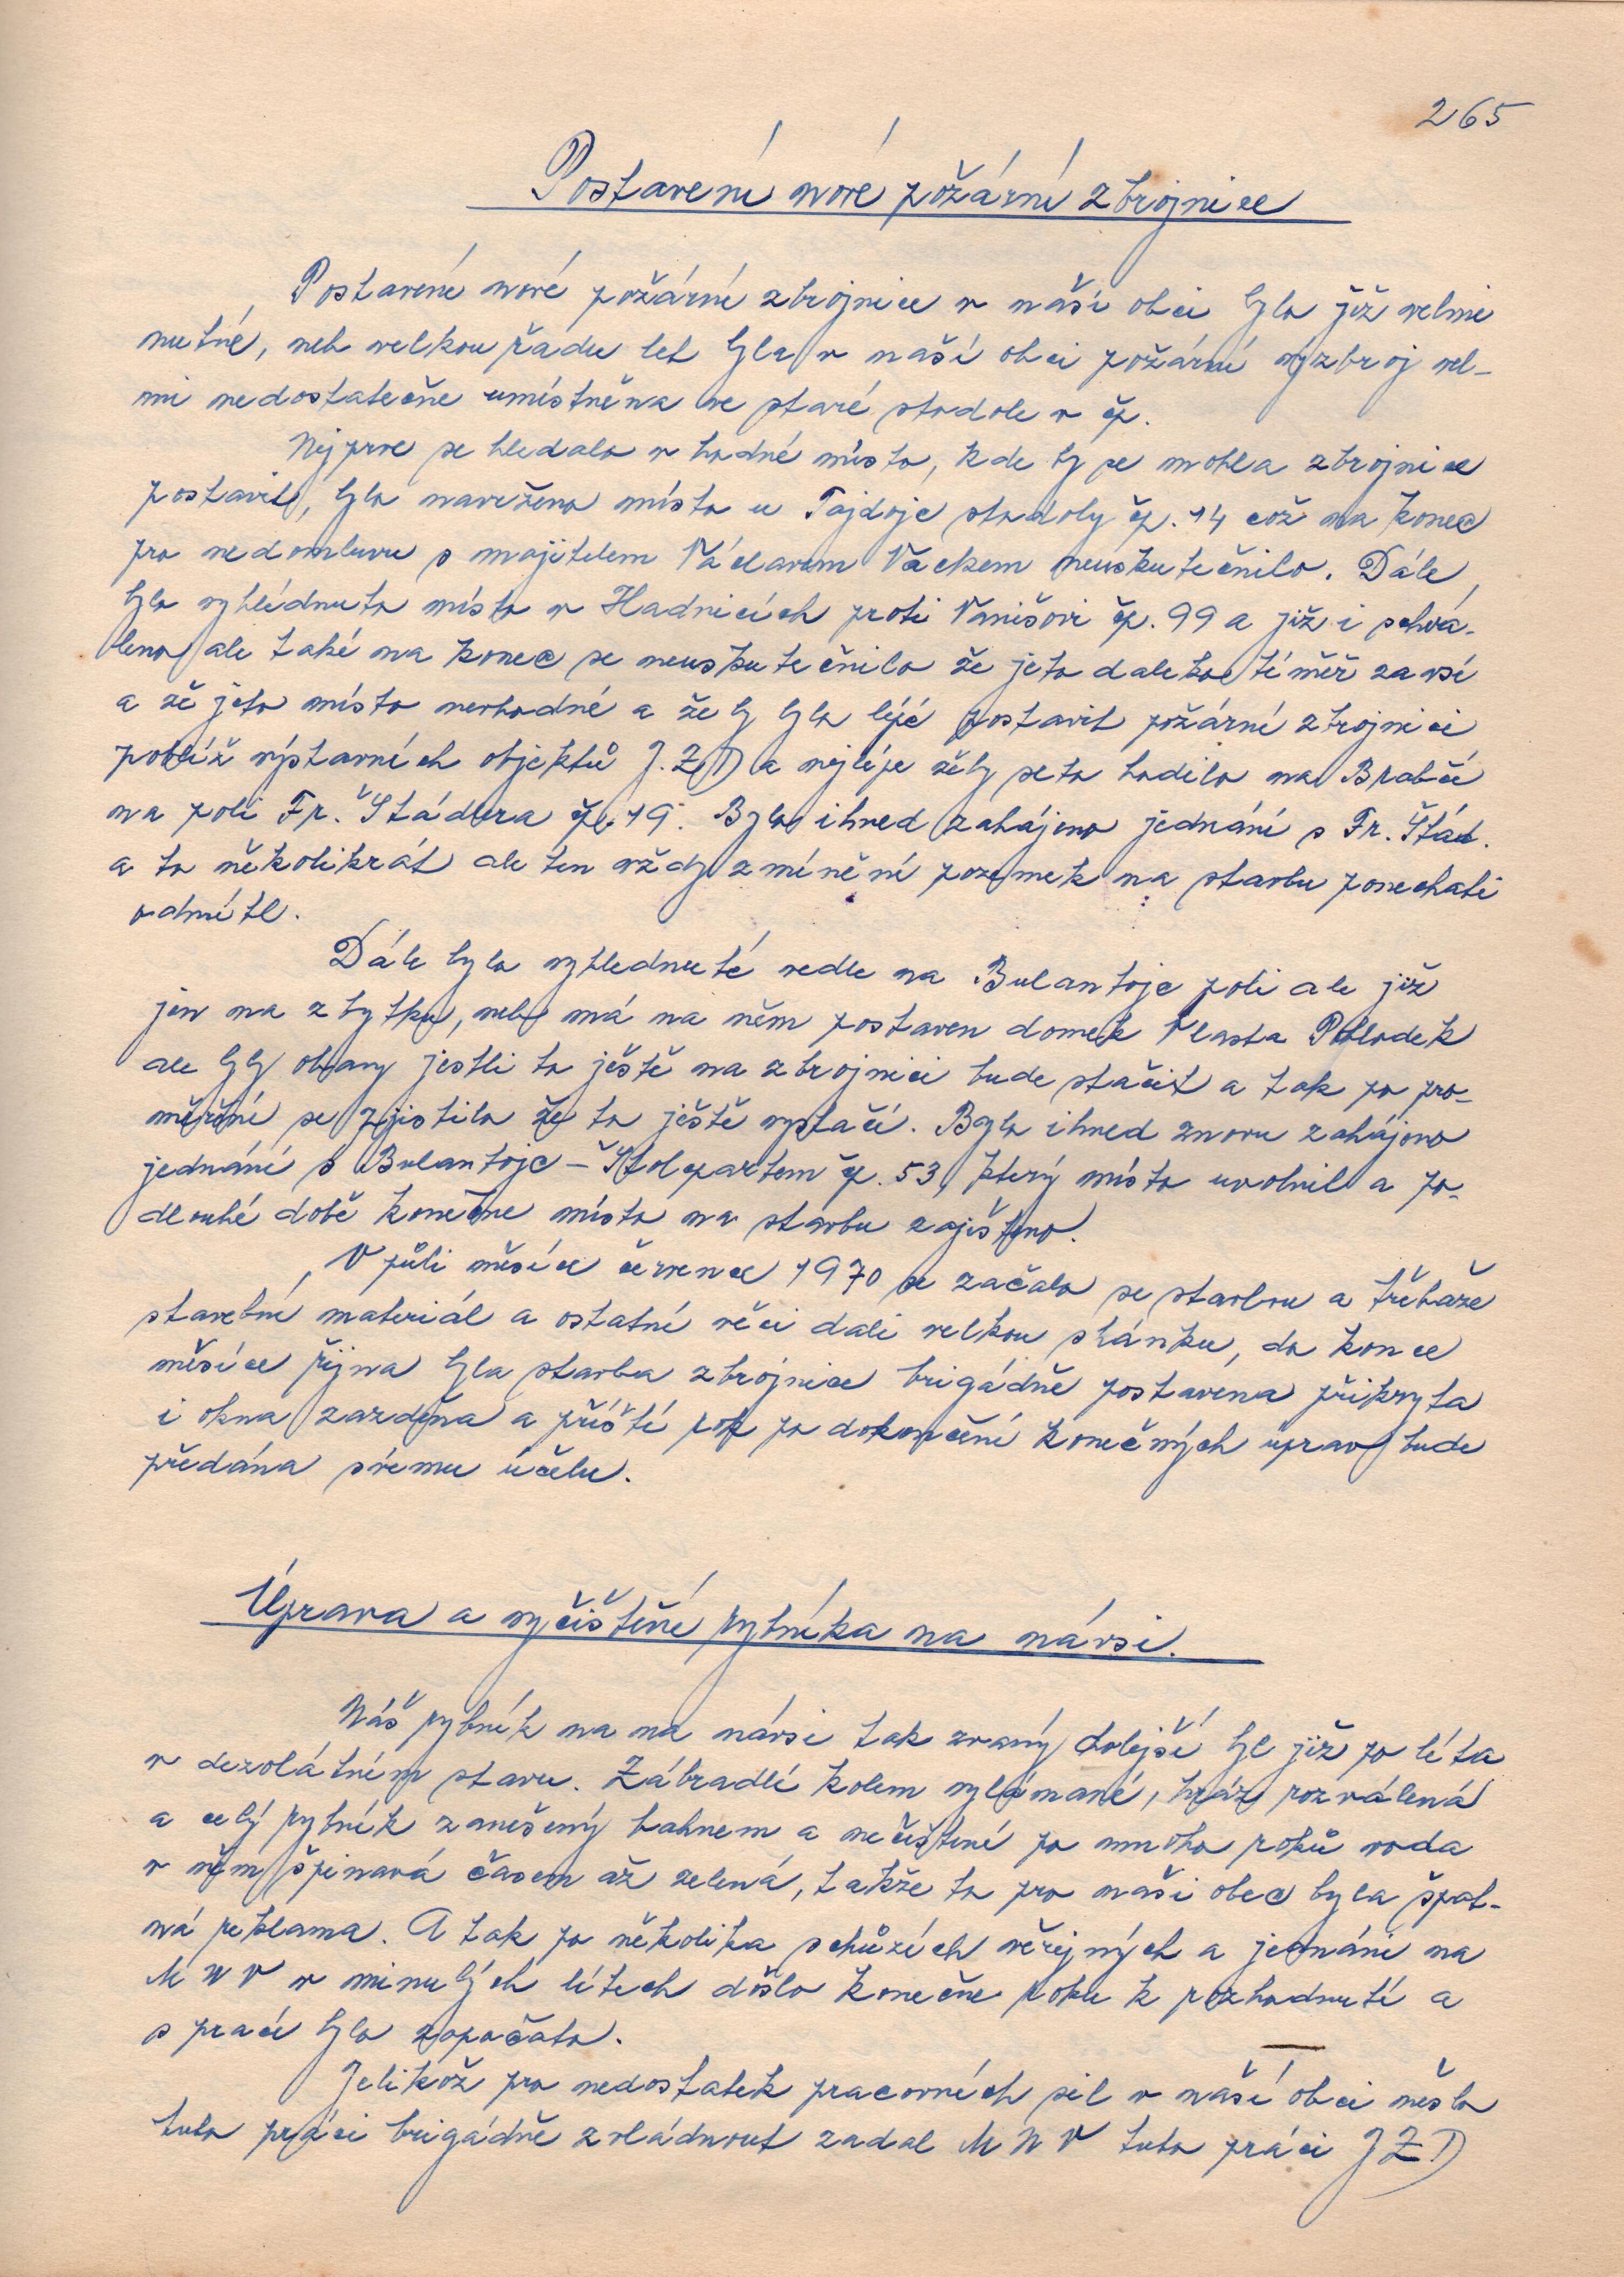 265
Postavení nové požární zbrojnice
Postavené nové požární zbrojnice v naší obci bylo již velmi
nutné, neb velkou řadu let byla v naší obci požární výzbroj vel-
mi nedostatečně umístněna ve staré stodole v čp.
Nejprve se hledalo vhodné místo, kde by se mohla zbrojnice
postavit, bylo navrženo místo u Tajdojc stodoly čp. 14 což na konec
pro nedomluvu s majitelem Václavem Vackem neuskutečnilo. Dále
bylo vyhlédnuto místo v Hadnicích proti Vanišovi čp. 99 a již i schvá-
leno ale také na konec se neuskutečnilo že jeto daleko téměř za vsí
a že jeto místo nevhodné a že by bylo lépé postavit požární zbrojnici
poblíž výstavních objektů J.Z.D a nejlépe žeby seto hodilo na Brabčí
na poli Fr. Štádlera čp. 19. Bylo ihned zahájeno jednání s Fr. Štád.
a to několikrát ale ten vždy zmínění pozemek na stavbu ponechati
odmítl.
Dále bylo vyhlednuté vedle na Bulantojc poli ale již
jen na zbytku, neb má na něm postaven domek Vlasta Pohlodek
ale byly obavy jestli to ještě na zbrojnici bude stačit a tak po pro-
měření se zjistilo že to ještě vystačí. Bylo ihned znovu zahájeno
jednání s Bulantojc – Štolpartem čp. 53, který místo uvolnil a po-
dlouhé době konečne místo na stavbu zajišteno.
V půli měsíce července 1970 se začalo se stavbou a třebaže
stavební materiál a ostatní věci dali velkou shánku, do konce
měsíce řijna byla stavba zbrojnice brigádně postavena přikryta
i okna zazděna a příští rok po dokončení konečných úprav bude
předána svému účelu.
Úprava a vyčištění rybníka na návsi.
Náš rybník na na návsi tak zvaný dolejší byl již po léta
v dezolátním stavu. Zábradlí kolem vylámané, hráz rozválená
a celý rybník zanešený bahnem a nečištené po mnoho roků voda
v něm špinavá časem až zelená, takže to pro naši obec byla špat-
ná reklama. A tak po několika schůzích věřejných a jednáni na
M N V v minulých létech došlo konečne roku k rozhodnutí a
s prací bylo započato.
Jelikož pro nedostatek pracovních sil v naší obci nešlo
tuto práci brigádně zvládnout zadal M N V tuto práci J Z D